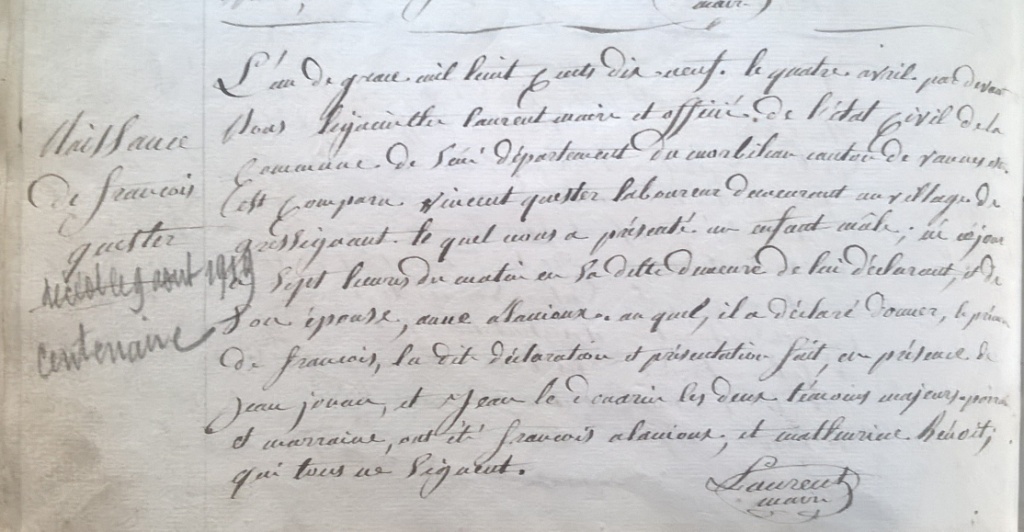 maire
L'an de grace mil huit Cents dix-neuf. le quatre avril par devant
Naissance
De francois
quester
décédé le 9 aout 1919
centenaire
Nous higacinthe laurent maire et officié. de l'état Civil de la
Commune. de Séné département du morbihan canton de vannes
Est Comparu vincent quester laboureur demeurant au village de
gressignant. le quel nous a présenté un enfant mâle; né cejour
a Sept heures du matin en Sa ditte demeure de lui déclarant, et de
Son épouse, anne alanioux. au quel, il a déclaré donner, le prénom
de francois, la dit déclaration et présentation fait, en présence de
Jean jouan, et Jean le douarin les deux témoins majeurs. parin
et marraine, ont été francois alanioux, et mathurine Benoit;
qui tous ne Signent.
Laurent
maire